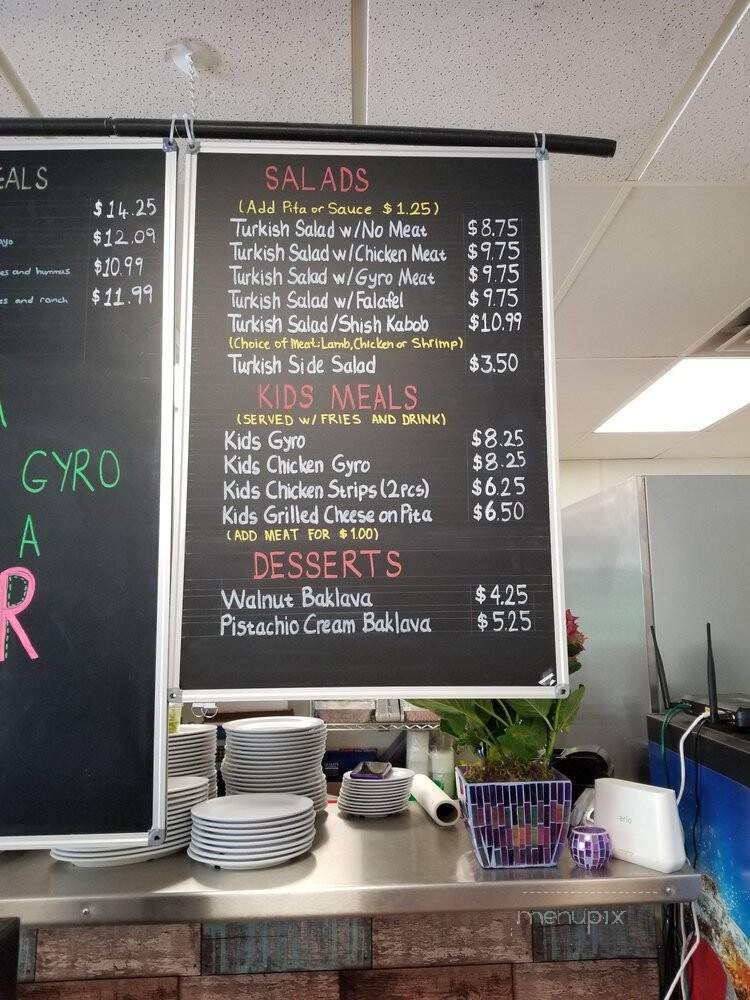 EALS
$14.25
ayo $12.09
es and hummus $10.99
es and ranch $11.99
A
GYRO
A
R
SALADS
(Add Pita or Sauce $1.25)
Turkish Salad w/No Meat $8.75
Turkish Salad w/Chicken Meat $9.75
Turkish Salad w/Gyro Meat $9.75
Turkish Salad w/Falafel $9.75
Turkish Salad/Shish Kabob $10.99
(Choice of Meat: Lamb, Chicken or Shrimp)
Turkish Side Salad $3.50
KIDS MEALS
(SERVED W/ FRIES AND DRINK)
Kids Gyro $8.25
Kids Chicken Gyro $8.25
Kids Chicken Strips (2pcs) $6.25
Kids Grilled Cheese on Pita $6.50
(ADD MEAT FOR $1.00)
DESSERTS
Walnut Baklava $4.25
Pistachio Cream Baklava $5.25
arlo
menupix